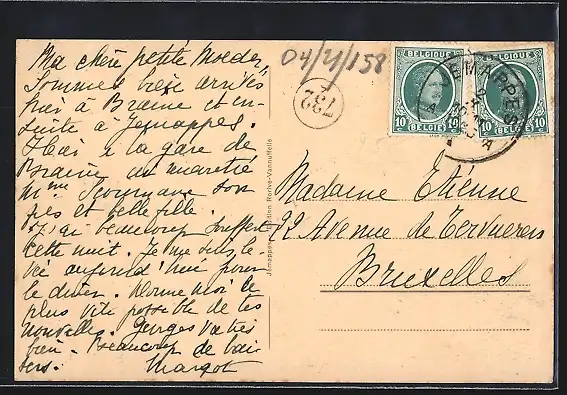 Ma chère petite Moeder,
Sommes bien arrivés
hier à Braine et en-
suite à Jemappes.
à la gare de
Braine
Mme son
fils et belle fille.
J'ai beaucoup souffert
cette nuit. Je me suis le-
vée aujourd'hui pour
le diner. Donne moi le
plus vite possible de tes
nouvelles. Georges va très
bien. Beaucoup de bai-
sers.
Margot
04/21/158
732
BELGIQUE
10 10
BELGIE
BELGIQUE
10 10
BELGIE
JEMAPPES
Madame Etienne
92 Avenue de Tervueren
Bruxelles